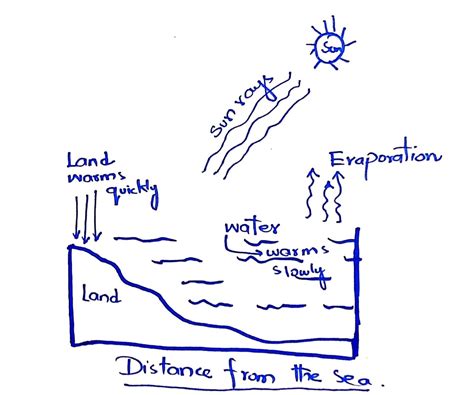 Sun
Sun rays
Land
warms
quickly
Evaporation
water
warms
slowly
Land
Distance from the sea.